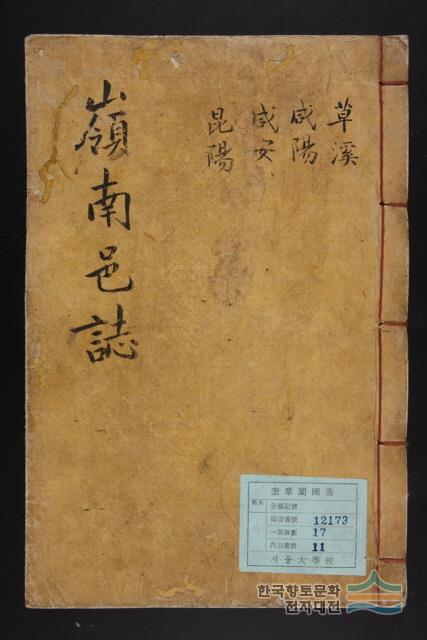 嶺南邑誌
草溪
咸陽
咸安
昆陽
奎章閣圖書
分類記號
圖書番號 12173
一部冊數 17
內冊番號 11
서울大學校
한국향토문화
전자대전